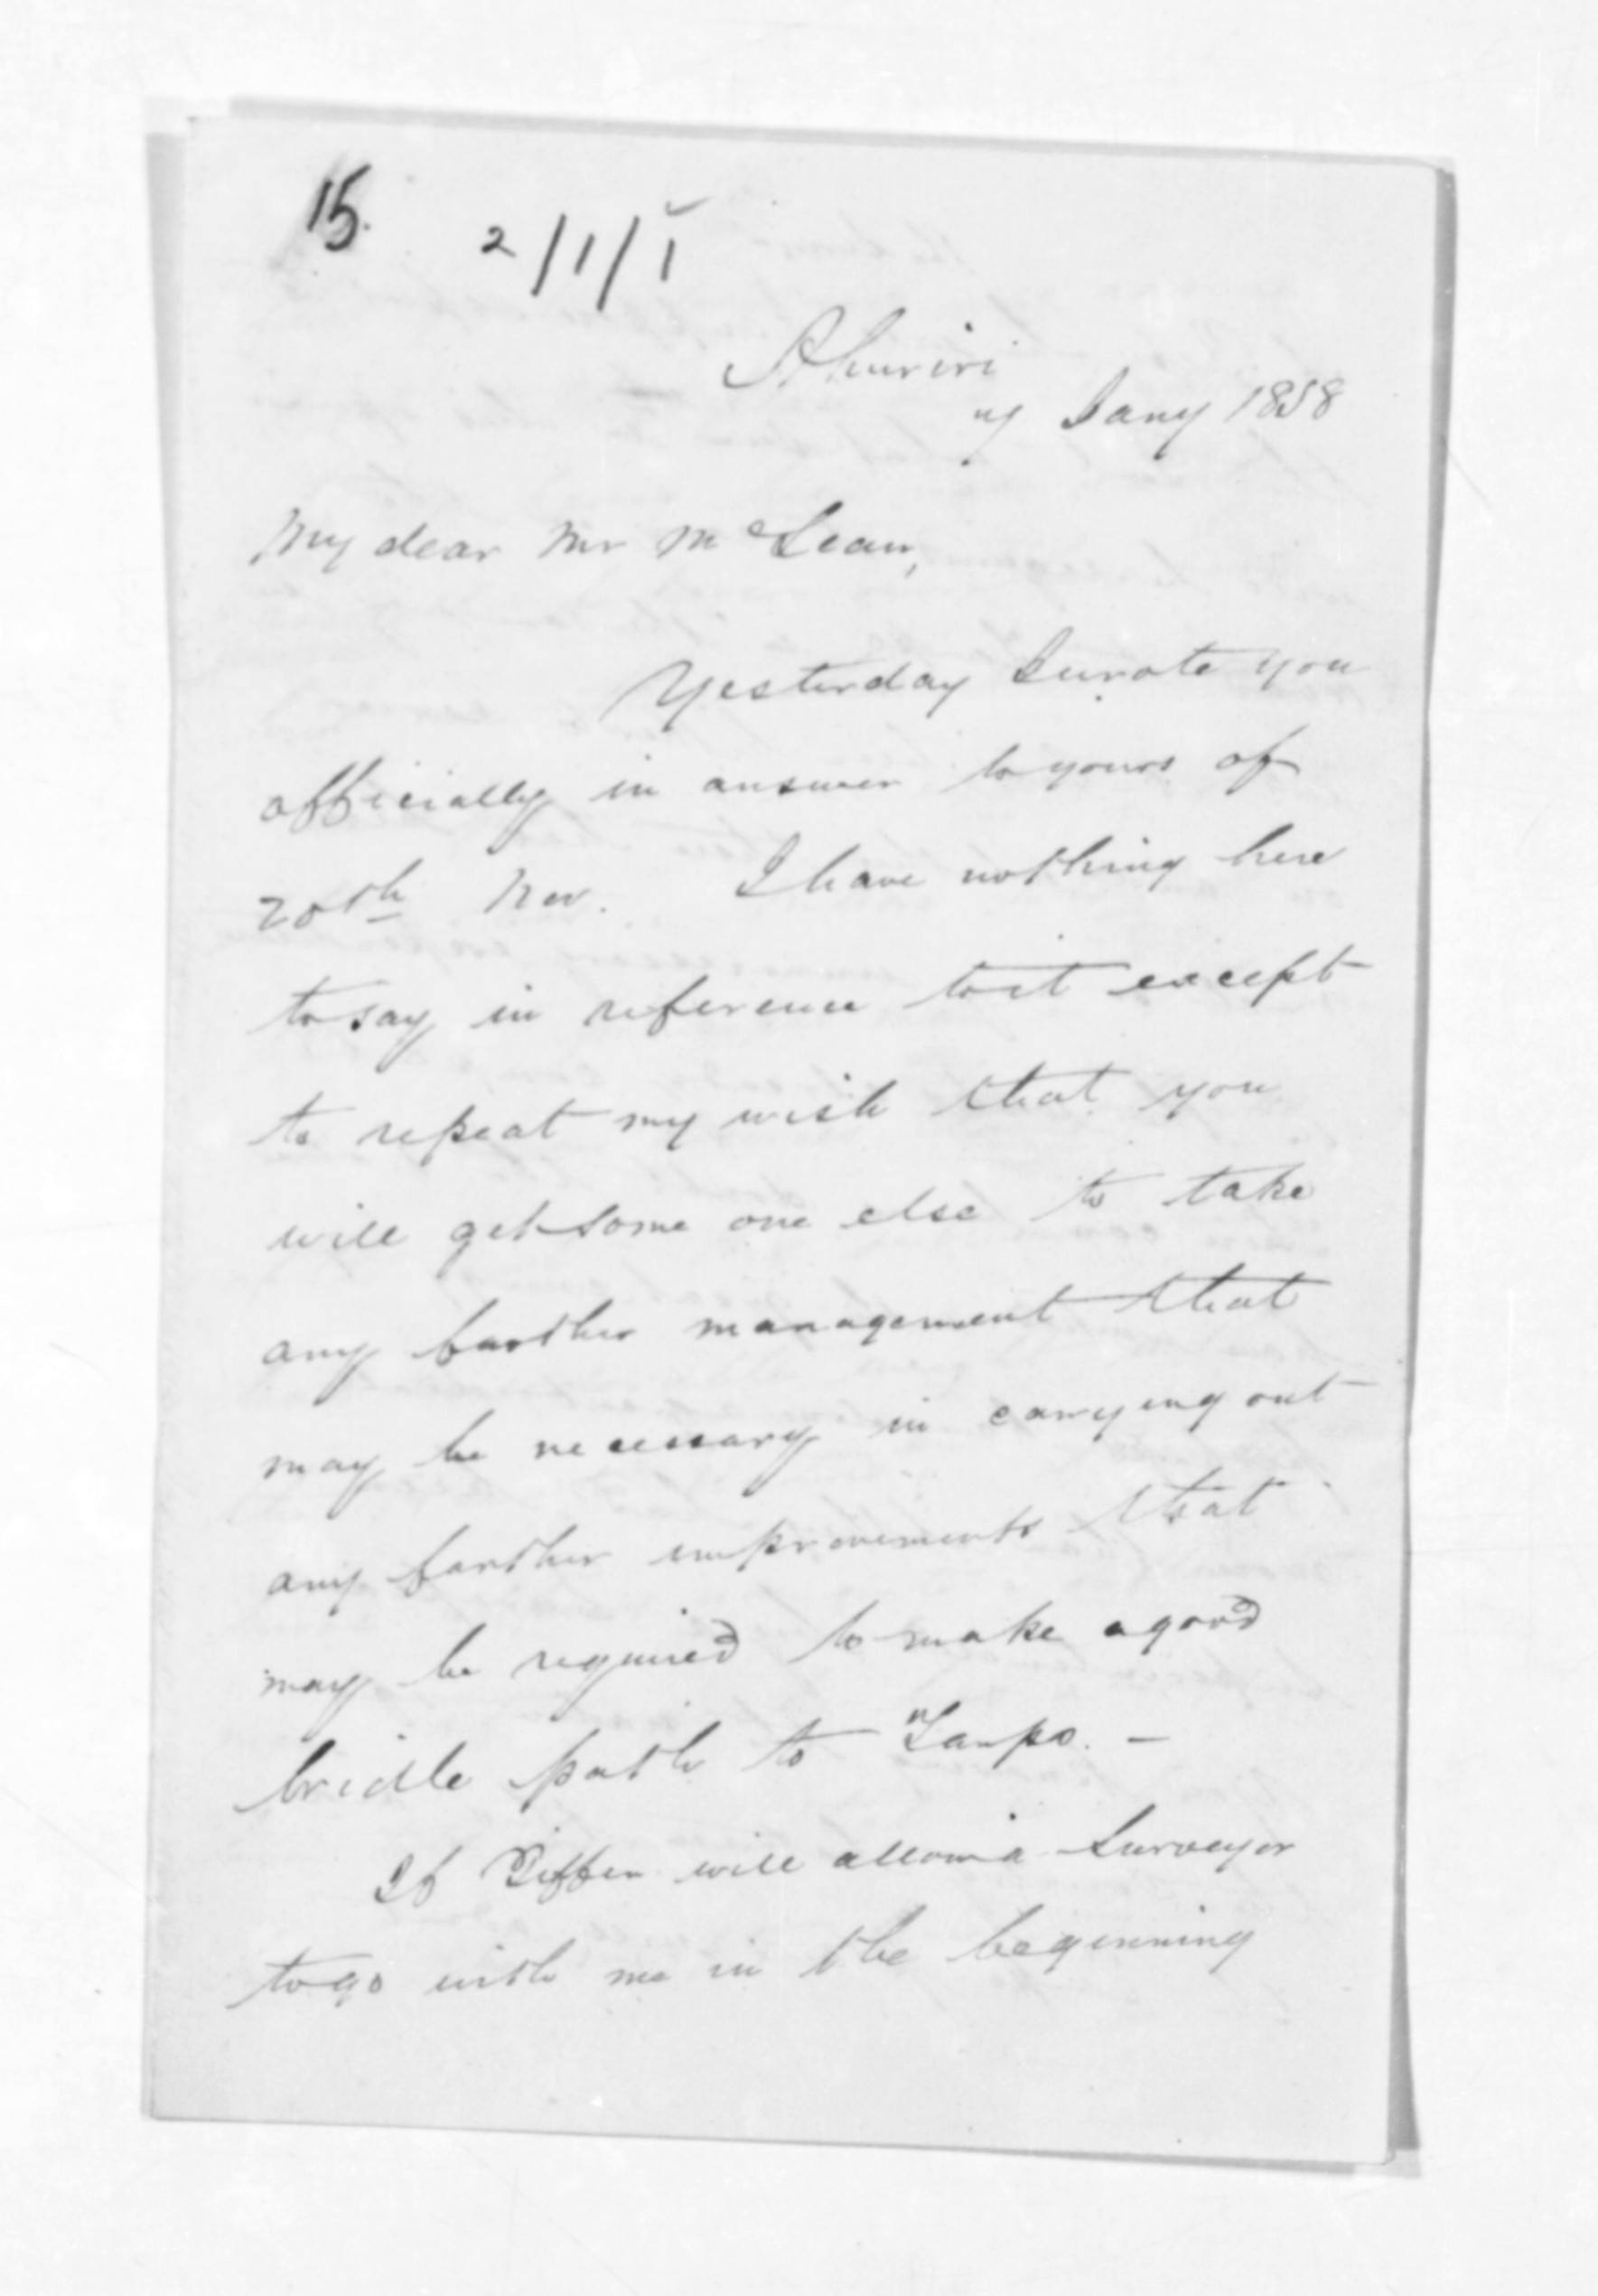 15.
2/1/1
Ahuriri
Jany 1858
My dear Mr McLean,
Yesterday I wrote you
officially in answer to yours of
20th Nov. I have nothing here
to say in reference to it except
to repeat my wish that you
will get some one else to take
any further management that
may be necessary in carrying out
any further improvements that
may be required to make a good
bridle path to Taupo. —
If Tiffen will allow a Surveyor
to go with me in the beginning